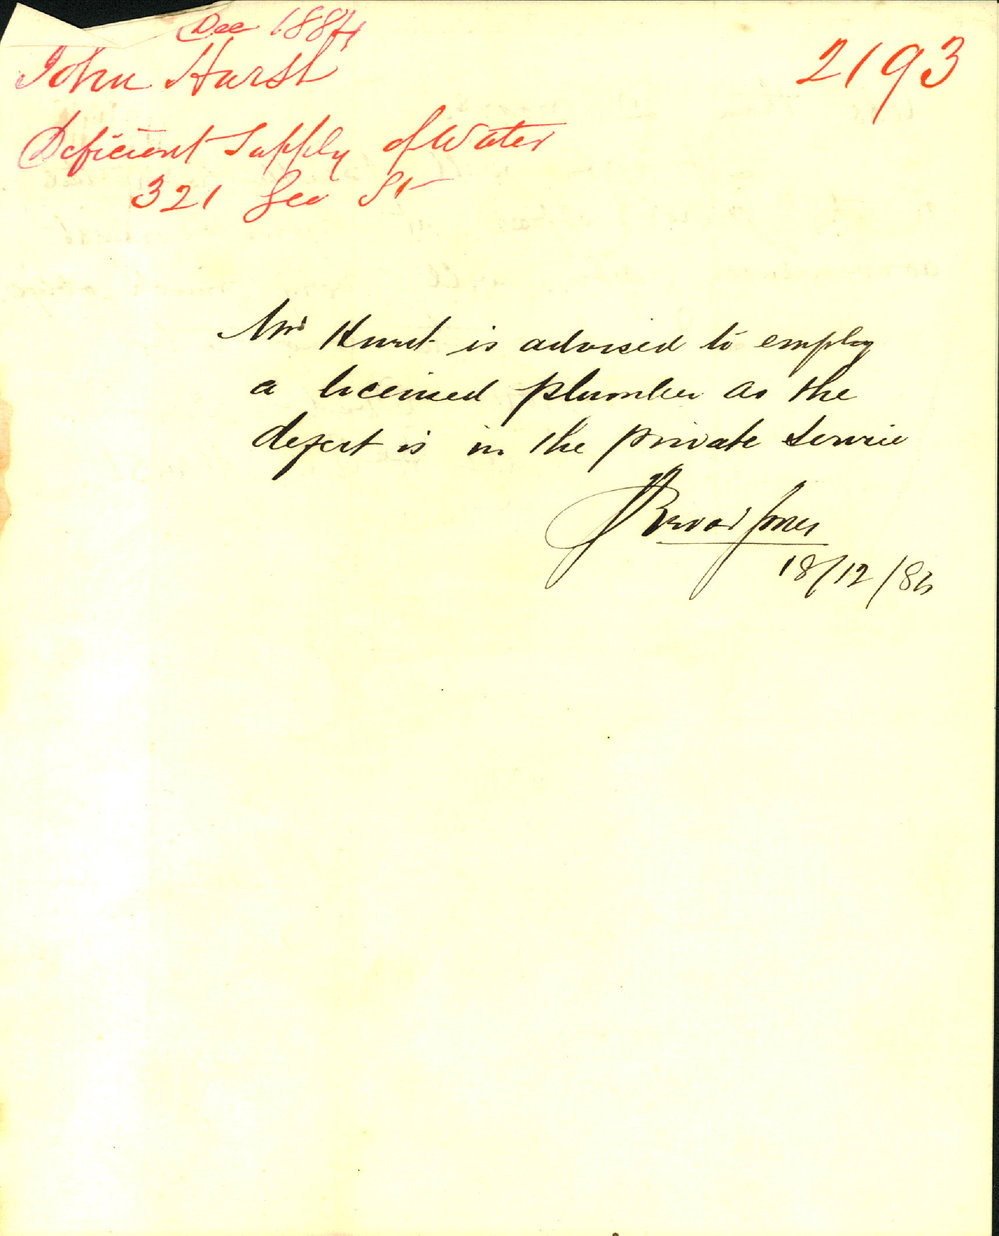 Dec 1884
John Hurst
2193
Deficient Supply of Water
321 Geo St
Mr Hurst is advised to employ
a licensed plumber as the
defect is in the private service
Jones
18/12/84